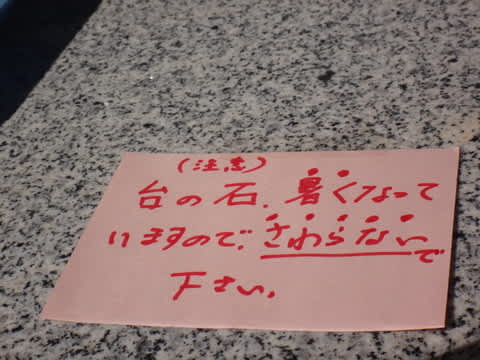 (注意)
台の石、暑くなって
いますので、さわらないで
下さい、